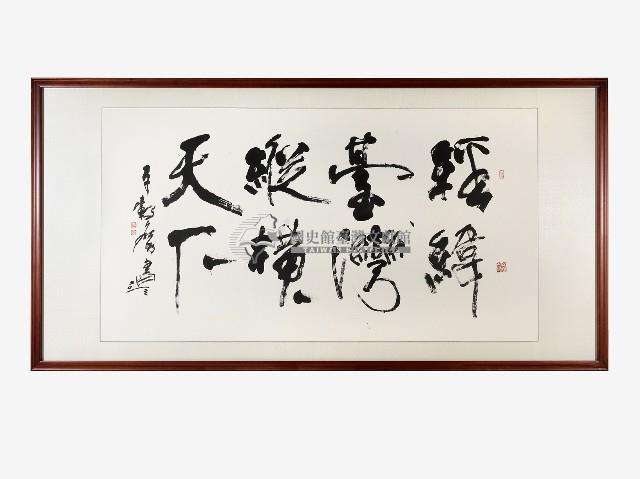 經緯
臺灣
縱橫
天下
國史館臺灣文獻館
TAIWAN HISTORICA